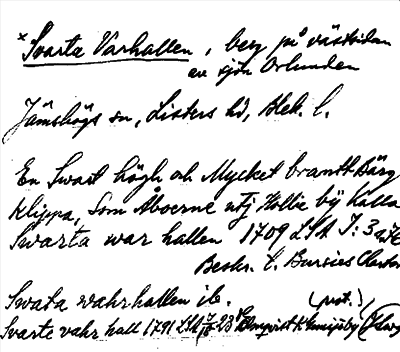 * Svarta Varhallen, berg på västsidan
av sjön Orlunden
Jämshögs sn, Listers hd, Blek. l.
En Swart högh och Mycket brandt Bärg
Klippa, Som Åboerne utj Hollie bÿ Kalla
Swarta war hallen 1709 LSA I: 3
Beskr. t. Bursies Charta
Swata wahrhallen ib.
Svarte vahr hall 1791 LSA